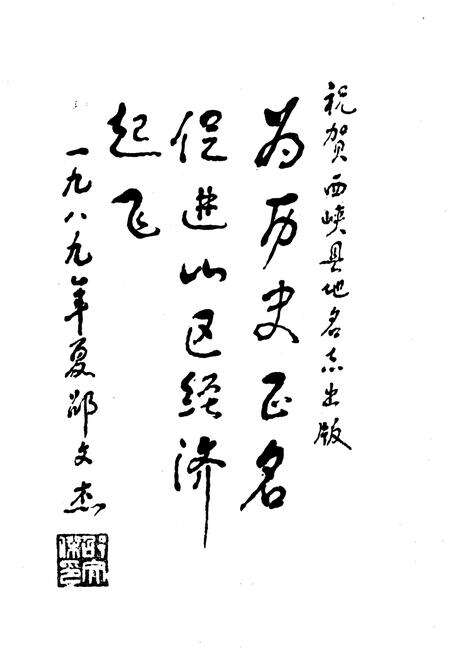 祝贺西峡县地名志出版
为历史正名
促进山区经济
起飞
一九八九年夏邵文杰
邵文傑印